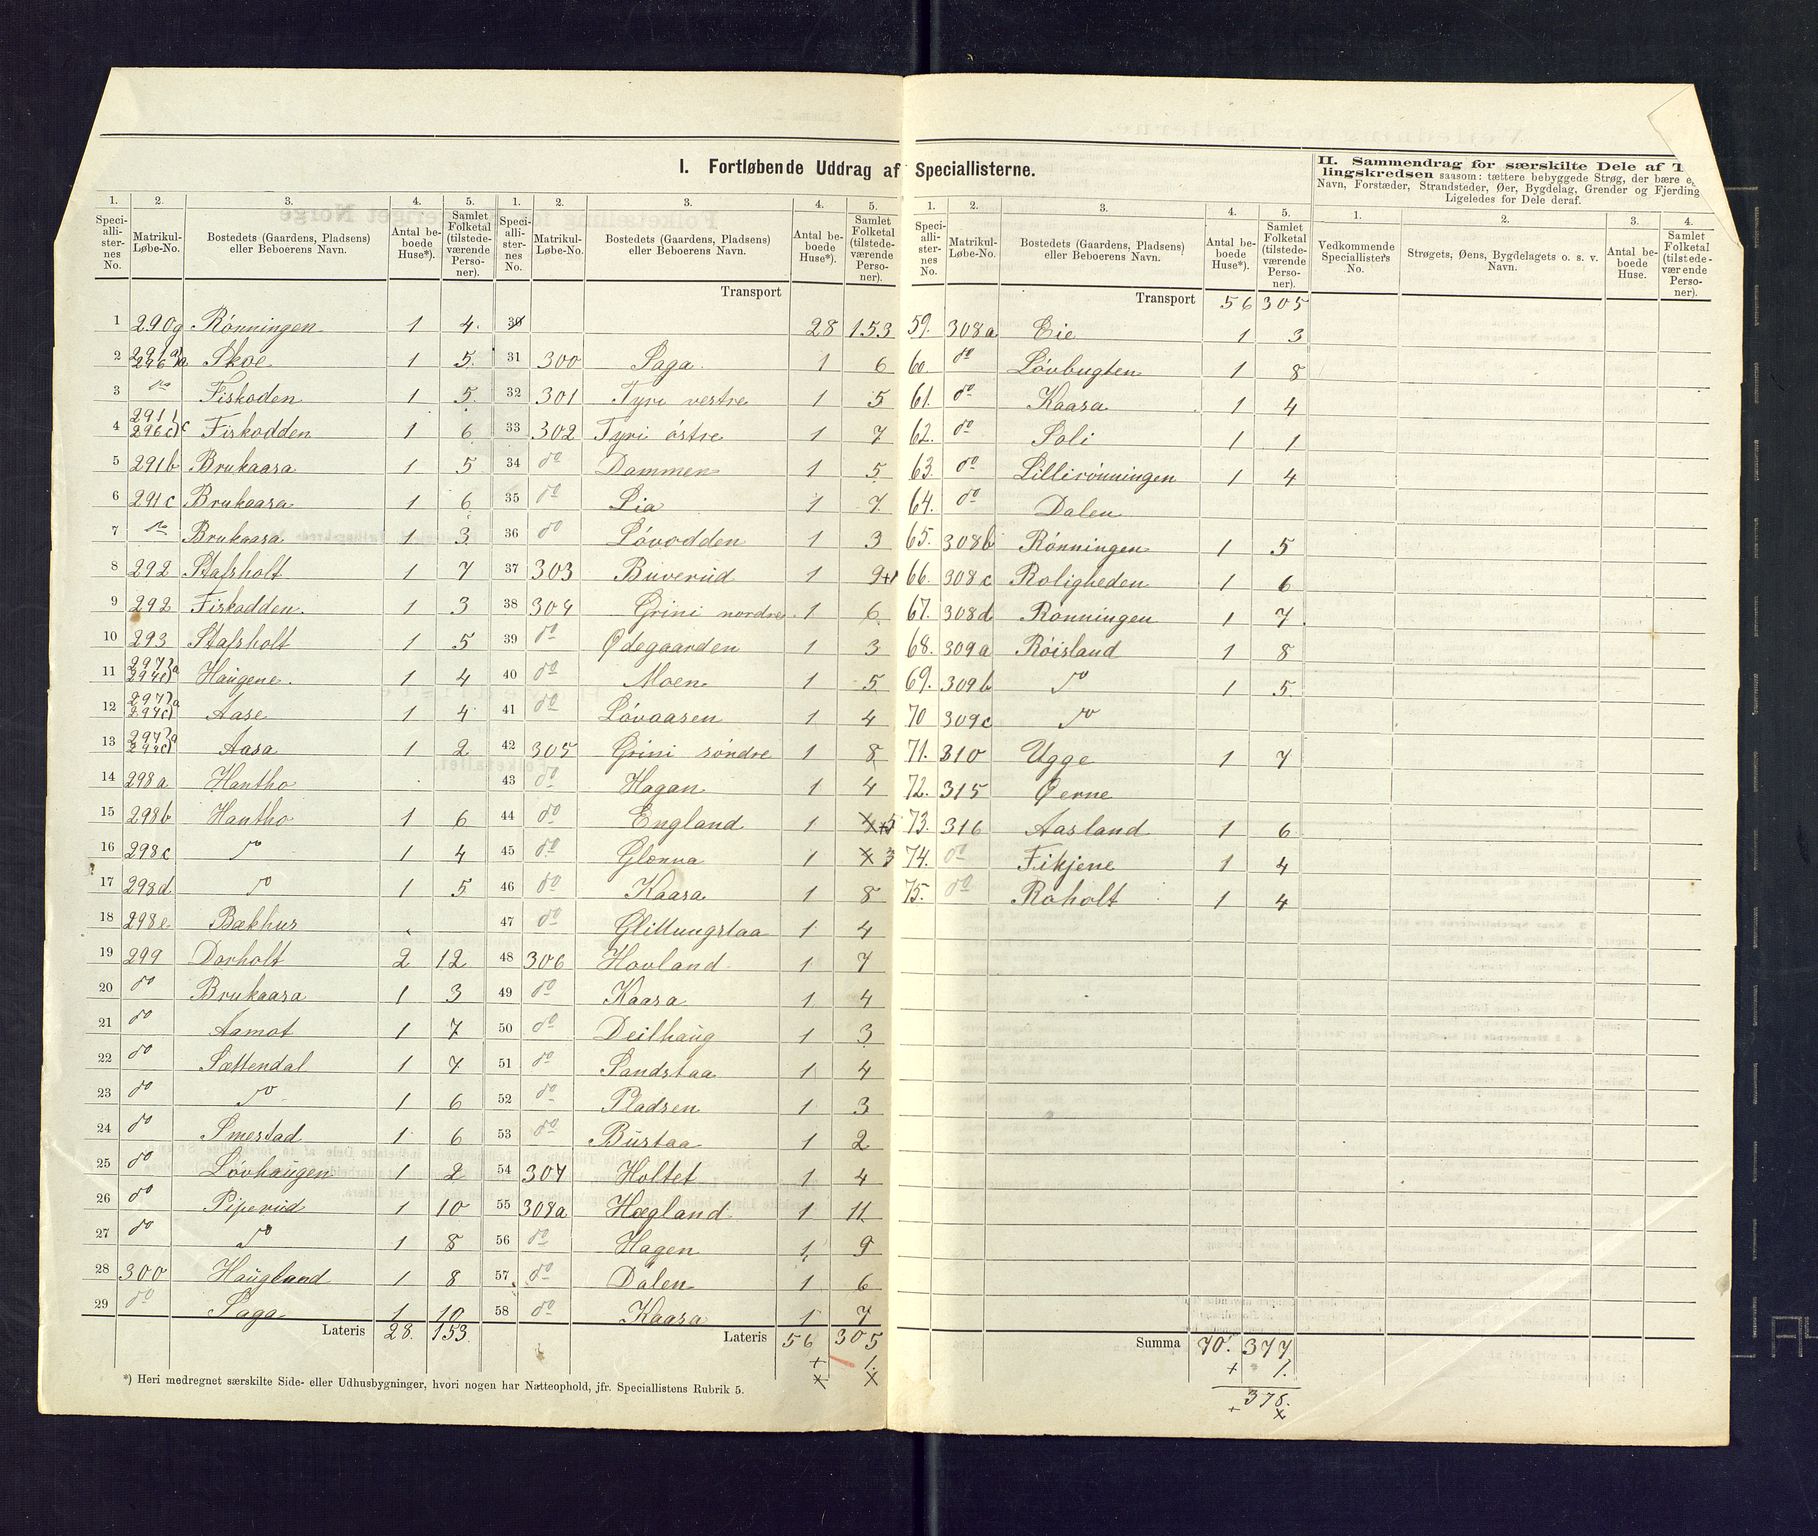 I. Fortløbende Uddrag af Speciallisterne.
II. Sammendrag for særskilte Dele af T
lingskredsen saasom: tættere bebyggede Strøg, der bære e
Navn, Forstæder, Strandsteder, Øer, Bygdelag, Grender og Fjerding
Ligeledes for Dele deraf.
1. 2. 3. 4. 5. 1. 2. 3. 4. 5. 1. 2. 3. 4. 5. 1. 2. 3. 4.
Speciallisternes No. Matrikul-Løbe-No. Bostedets (Gaardens, Pladsens) eller Beboerens Navn. Antal beboede Huse*). Samlet Folketal (tilstedeværende Personer).
Speciallisternes No. Matrikul-Løbe-No. Bostedets (Gaardens, Pladsens) eller Beboerens Navn. Antal beboede Huse*). Samlet Folketal (tilstedeværende Personer).
Speciallisternes No. Matrikul-Løbe-No. Bostedets (Gaardens, Pladsens) eller Beboerens Navn. Antal beboede Huse*). Samlet Folketal (tilstedeværende Personer).
Vedkommende Speciallisters No. Strøgets, Øens, Bygdelagets o. s. v. Navn. Antal beboede Huse. Samlet Folketal (tilstedeværende Personer).
1 290g Rønningen 1 4.
2 296 a Skoe 1 5.
3 do Fiskoden 1 5.
4 291 296c c Fiskodden 1 6
5 291b Brukaasa 1 5
6 291c Brukaasa 1 6
7 do Brukaasa 1 3
8 292 Stafsholt 1 7
9 292 Fiskodden 1 3
10 293 Stafsholt 1 5
11 297 a 294c Haugene. 1 4
12 297 a 294c Aase 1 4
13 297 a Aasa 1 2
14 298a Hantho
15 298b Hantho 1 6
16 298c do 1 4
17 298d do 1 5
18 298e Bækhus
19 299 Dorholt 2 12
20 do Brukaasa 1 3
21 do Aamot 1 7
22 do Sættendal 1 7
23 do do 1 6
24 do Smestad 1 6
25 do Løvhaugen 1 2
26 do Piperud 1 10
27 do do 1 8
28 300 Haugland 1 8
29 do Saga 1 10
Lateris 28. 153.
Transport
30 28 153
31 300 Saga 1 6
32 301 Tyri vestre 1 5
33 302 Tyri østre 1 7
34 do Dammen 1 5
35 do Lia 1 7
36 do Løvodden 1 3
37 303 Buverud 1 9+1
38 304 Grini nordre 1 6
39 do Ødegaarden 1 3
40 do Moen 1 5
41 do Løvaasen 1 4
42 305 Grini søndre 1 8
43 do Hagan 1 4
44 do England 1 4+5
45 do Glenna 1 3
46 do Kaasa 1 8
47 do Glittungstaa 1 4
48 306 Hovland 1 7
49 do Kaasa 1 4
50 do Deilhaug 1 3
51 do Sandstaa 1 4
52 do Pladsen 1 3
53 do Bustaa 1 2
54 307 Holtet 1 4
55 308a Hægland 1 11
56 do Hagen 1 9
57 do Dalen 1 6
58 do Kaasa 1 7
Lateris 56 305
+ 1.
x x
Transport 56 305
59. 308a Eie 1 3
60. do Løvbugten 1 8
61. do Kaasa 1 4
62. do Soli 1 1
63. do Lillerønningen 1 4
64. do Dalen
65. 308b Rønningen 1 5
66. 308c Roligheden 1 6
67. 308d Rønningen 1 7
68. 309a Røisland 1 8
69. 309b do 1 5.
70 309c do
71. 310 Ugge 1 7
72. 315 Øerne
73. 316 Aasland 1 6
74. do Fikjene 1 4
75. do Roholt 1 4
Summa 70. 377
+ 1.
378.
+ x
*) Heri medregnet særskilte Side- eller Udhusbygninger, hvori nogen har Natteophold, jfr. Speciallistens Rubrik 5.